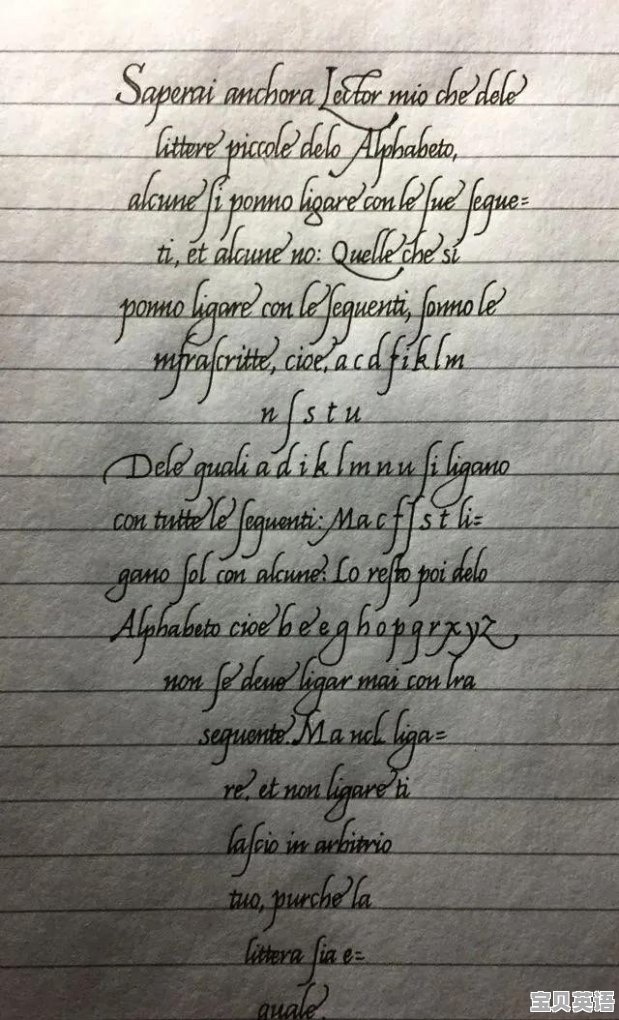 Saperai anchora Lector mio che dele
littere piccole delo Alphabeto,
alcune ſi ponno ligare con le ſue ſegue=
ti, et alcune no: Quelle che si
ponno ligare con le ſeguenti, ſonno le
mfraſcritte, cioe, a c d f i k l m
n ſ s t u
Dele quali a d i k l m n u ſi ligano
con tutte le ſeguenti: Ma c f ſ s t li=
gano ſol con alcune: Lo reſto poi delo
Alphabeto cioe b e e g h o p q r x y z
non ſe deue ligar mai con lra
seguente. Ma nel liga=
re, et non ligare ti
laſcio in arbitrio
tuo, purche la
littera ſia e=
quale.
宝贝英语